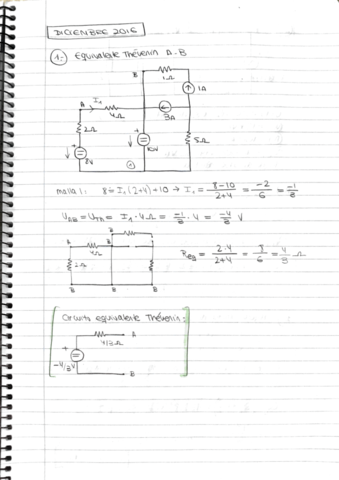 DICIEMBRE 2016
1. Equivalente Thévenin A-B
B 1Ω
1A
A I₁ 4Ω 3A
2Ω 5Ω
+ +
8V 10V
malla 1: 8 = I₁ (2+4) + 10 → I₁ = 8-10 / 2+4 = -2 / 6 = -1 / 3
U_AB = U_TH = I₁ · 4Ω = -1/3 · 4 = -4/3 V
A 4Ω
2Ω
B B B
R_EQ = 2·4 / 2+4 = 8 / 6 = 4 / 3 Ω
Circuito equivalente Thévenin:
A
4/3 Ω
+
-4/3 V
B